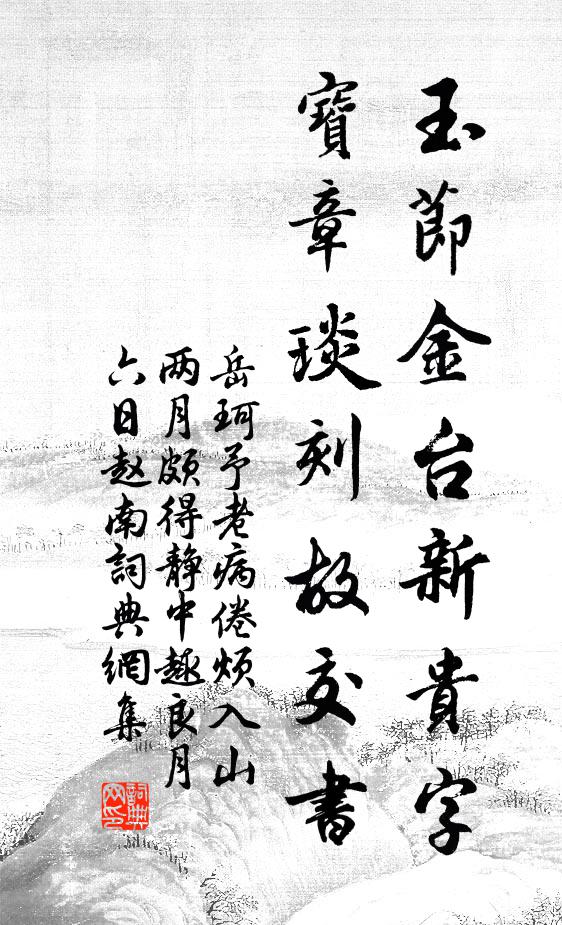 玉節金台新貴字
寶章琰刻故交書
岳珂予老病倦烦入山
两月颇得静中趣良月
六日赵南詞典網集
詞典
网印